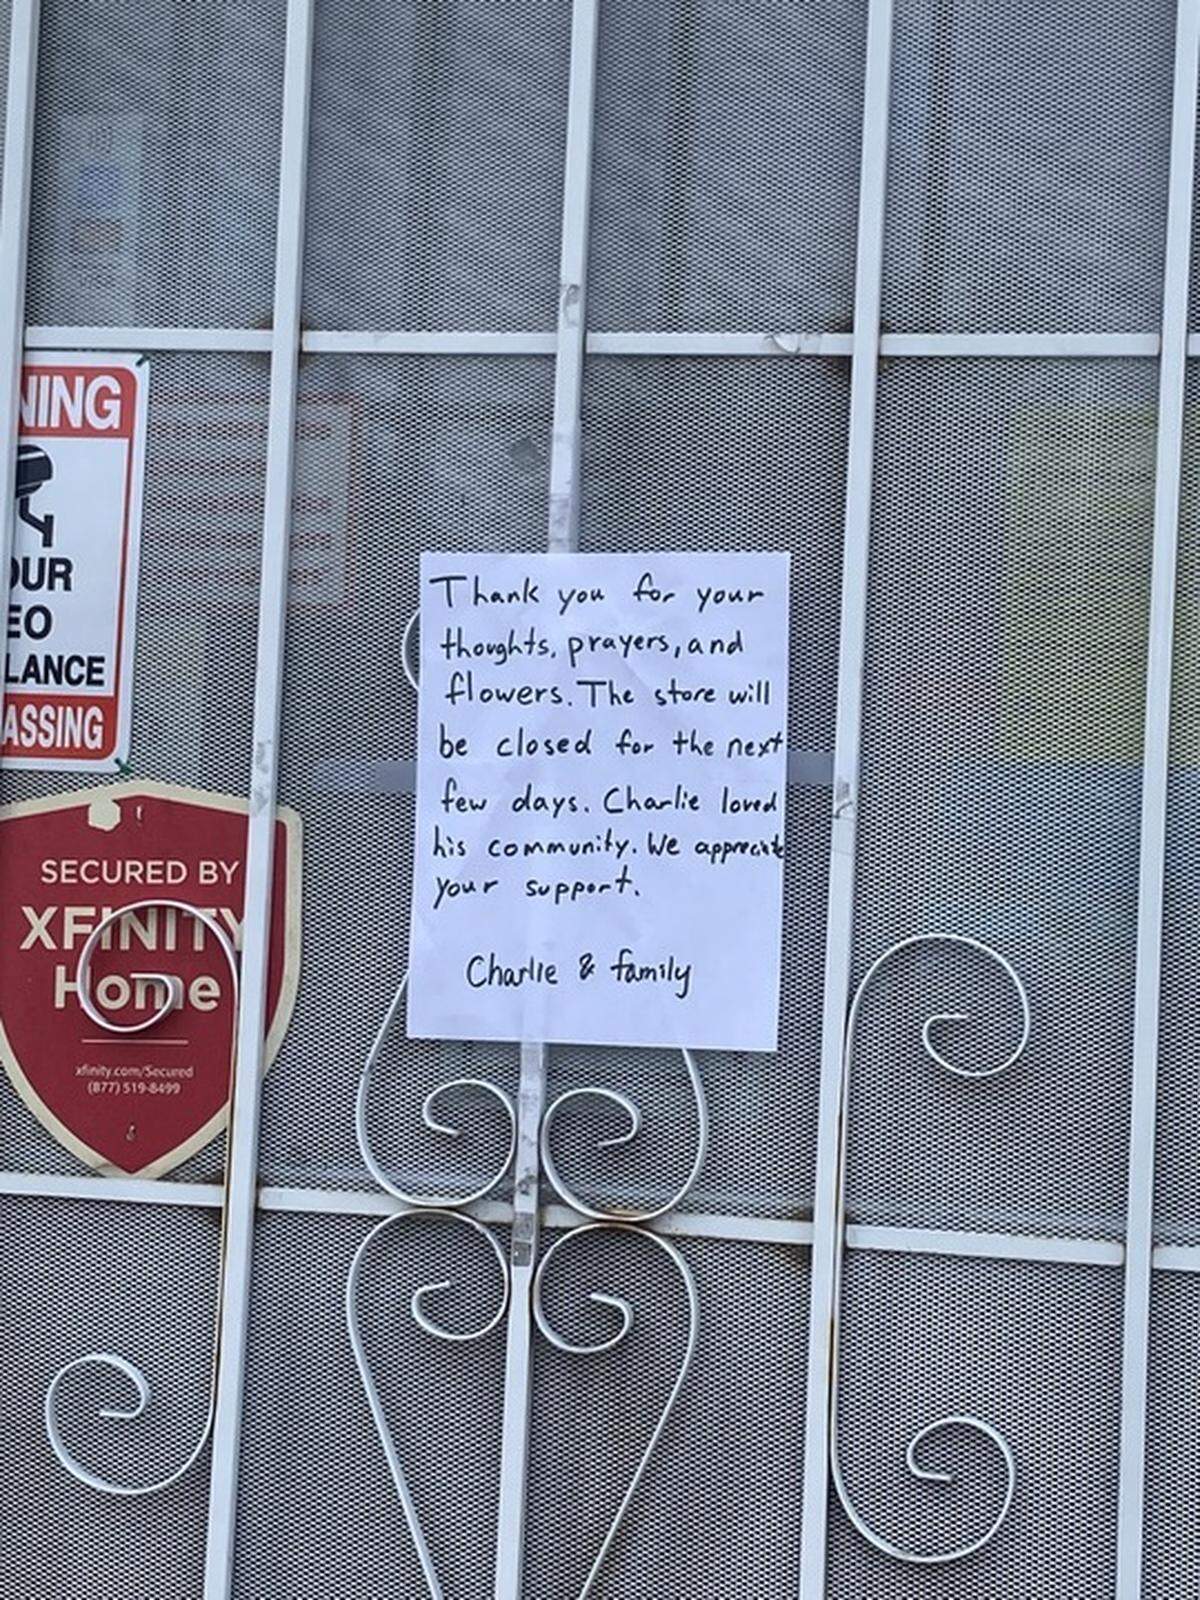 NING
OUR
EO
LANCE
ASSING
SECURED BY
XFINITY
Home
xfinity.com/Secured
(877) 519-8499
Thank you for your
thoughts, prayers, and
flowers. The store will
be closed for the next
few days. Charlie loved
his community. We appreciate
your support.
Charlie & family